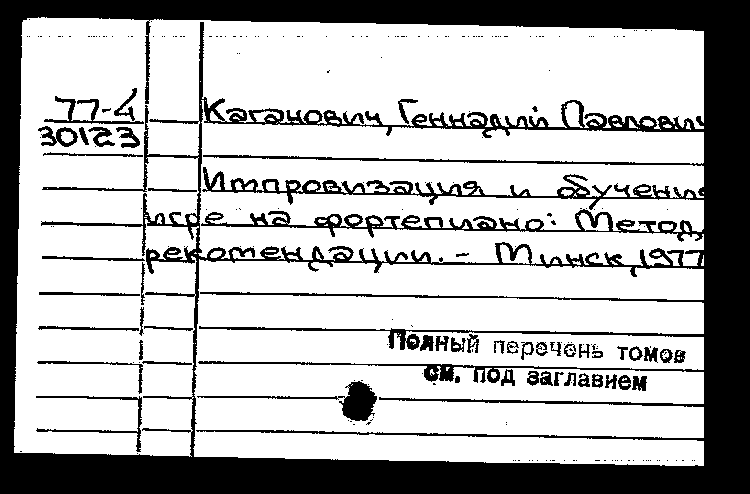 77-4
30123
Каганович, Геннадий Павлович
Импровизация и обучение
игре на фортепиано: Метод.
рекомендации. - Минск, 1977
Полный перечень томов
см. под заглавием